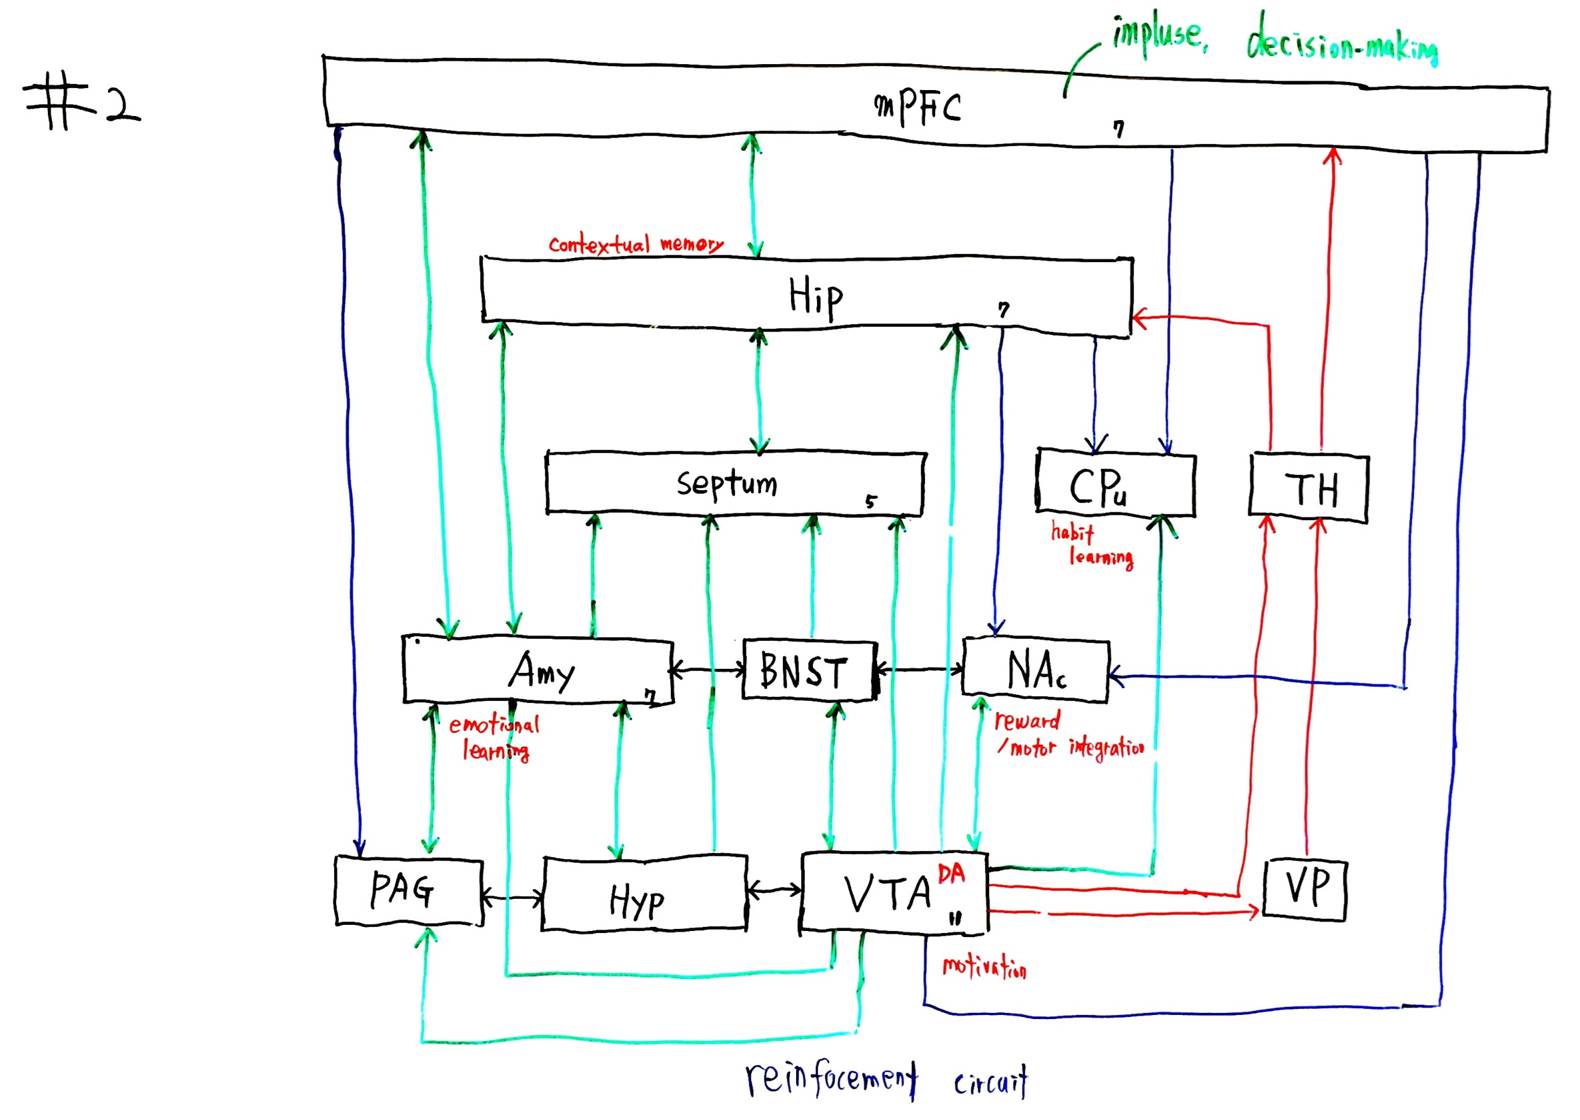 impluse, decision-making
#2
mPFC
7
contextual memory
Hip
7
septum
5
CPu
TH
habit
learning
Amy
7
BNST
NAc
emotional
learning
reward
/motor integration
PAG
Hyp
VTA DA
11
VP
motivation
reinfocement circuit